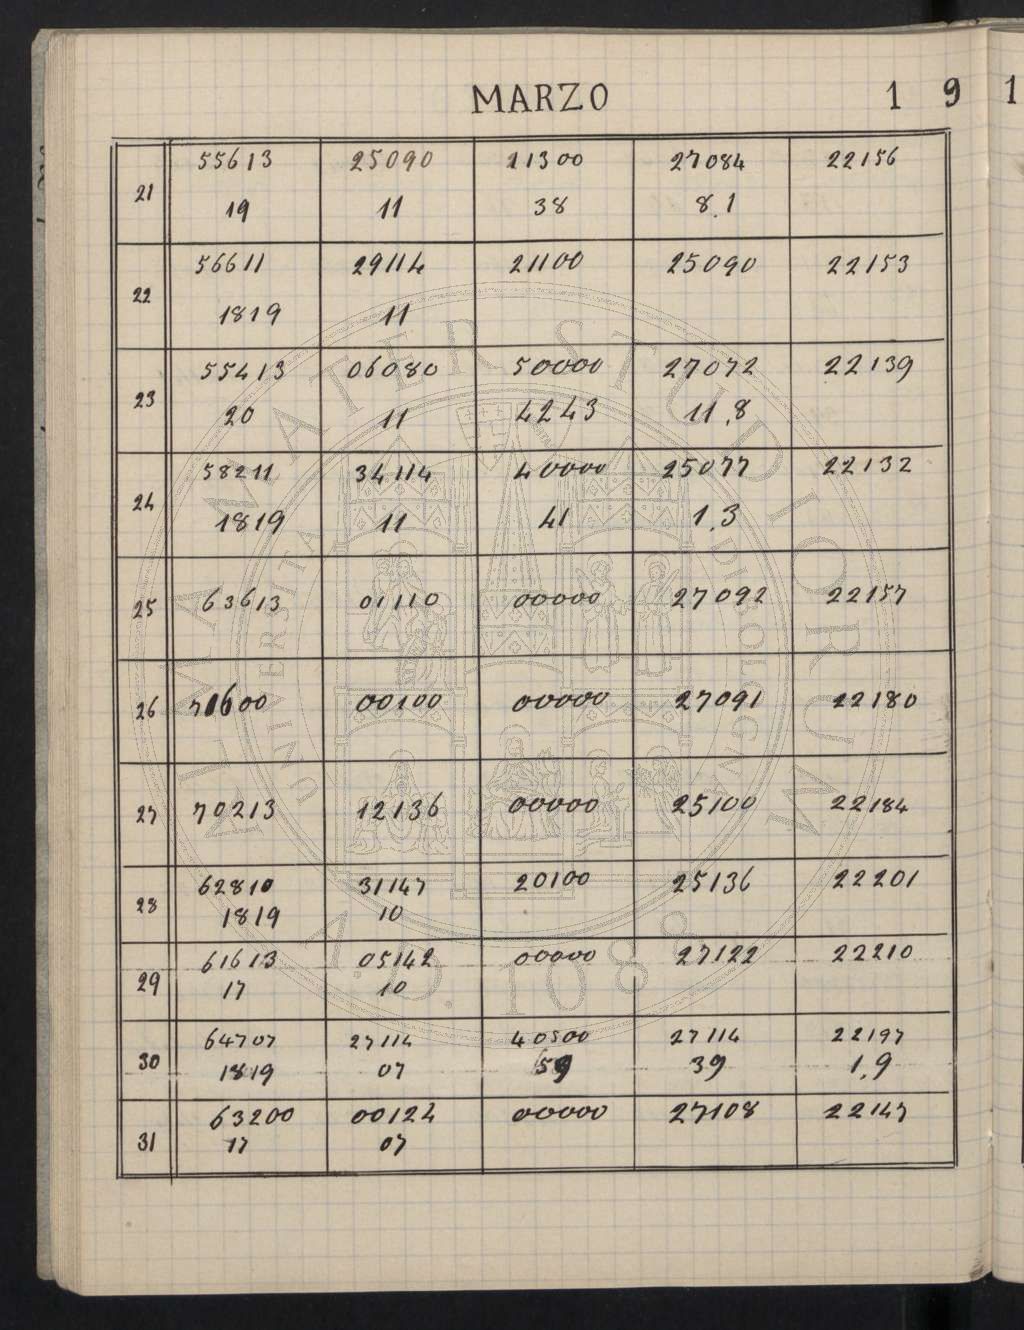 MARZO 1 9 1
21 55613 25090 11300 27084 22156
19 11 38 8.1
22 56611 29114 21100 25090 22153
1819 11
23 55413 06080 50000 27072 22139
20 11 4243 11.8
24 58211 34114 40000 25077 22132
1819 11 41 1.3
25 63613 01110 00000 27092 22157
26 71600 00100 00000 27091 22180
27 70213 12136 00000 25100 22184
28 62810 31147 20100 25136 22201
1819 10
29 61613 05142 00000 27122 22210
17 10
30 64707 27114 40500 27114 22197
1819 07 59 39 1.9
31 63200 00124 00000 27108 22147
17 07
ALMA MATER STUDIORUM
A.D. 1088
UNIVERSITÀ DI BOLOGNA